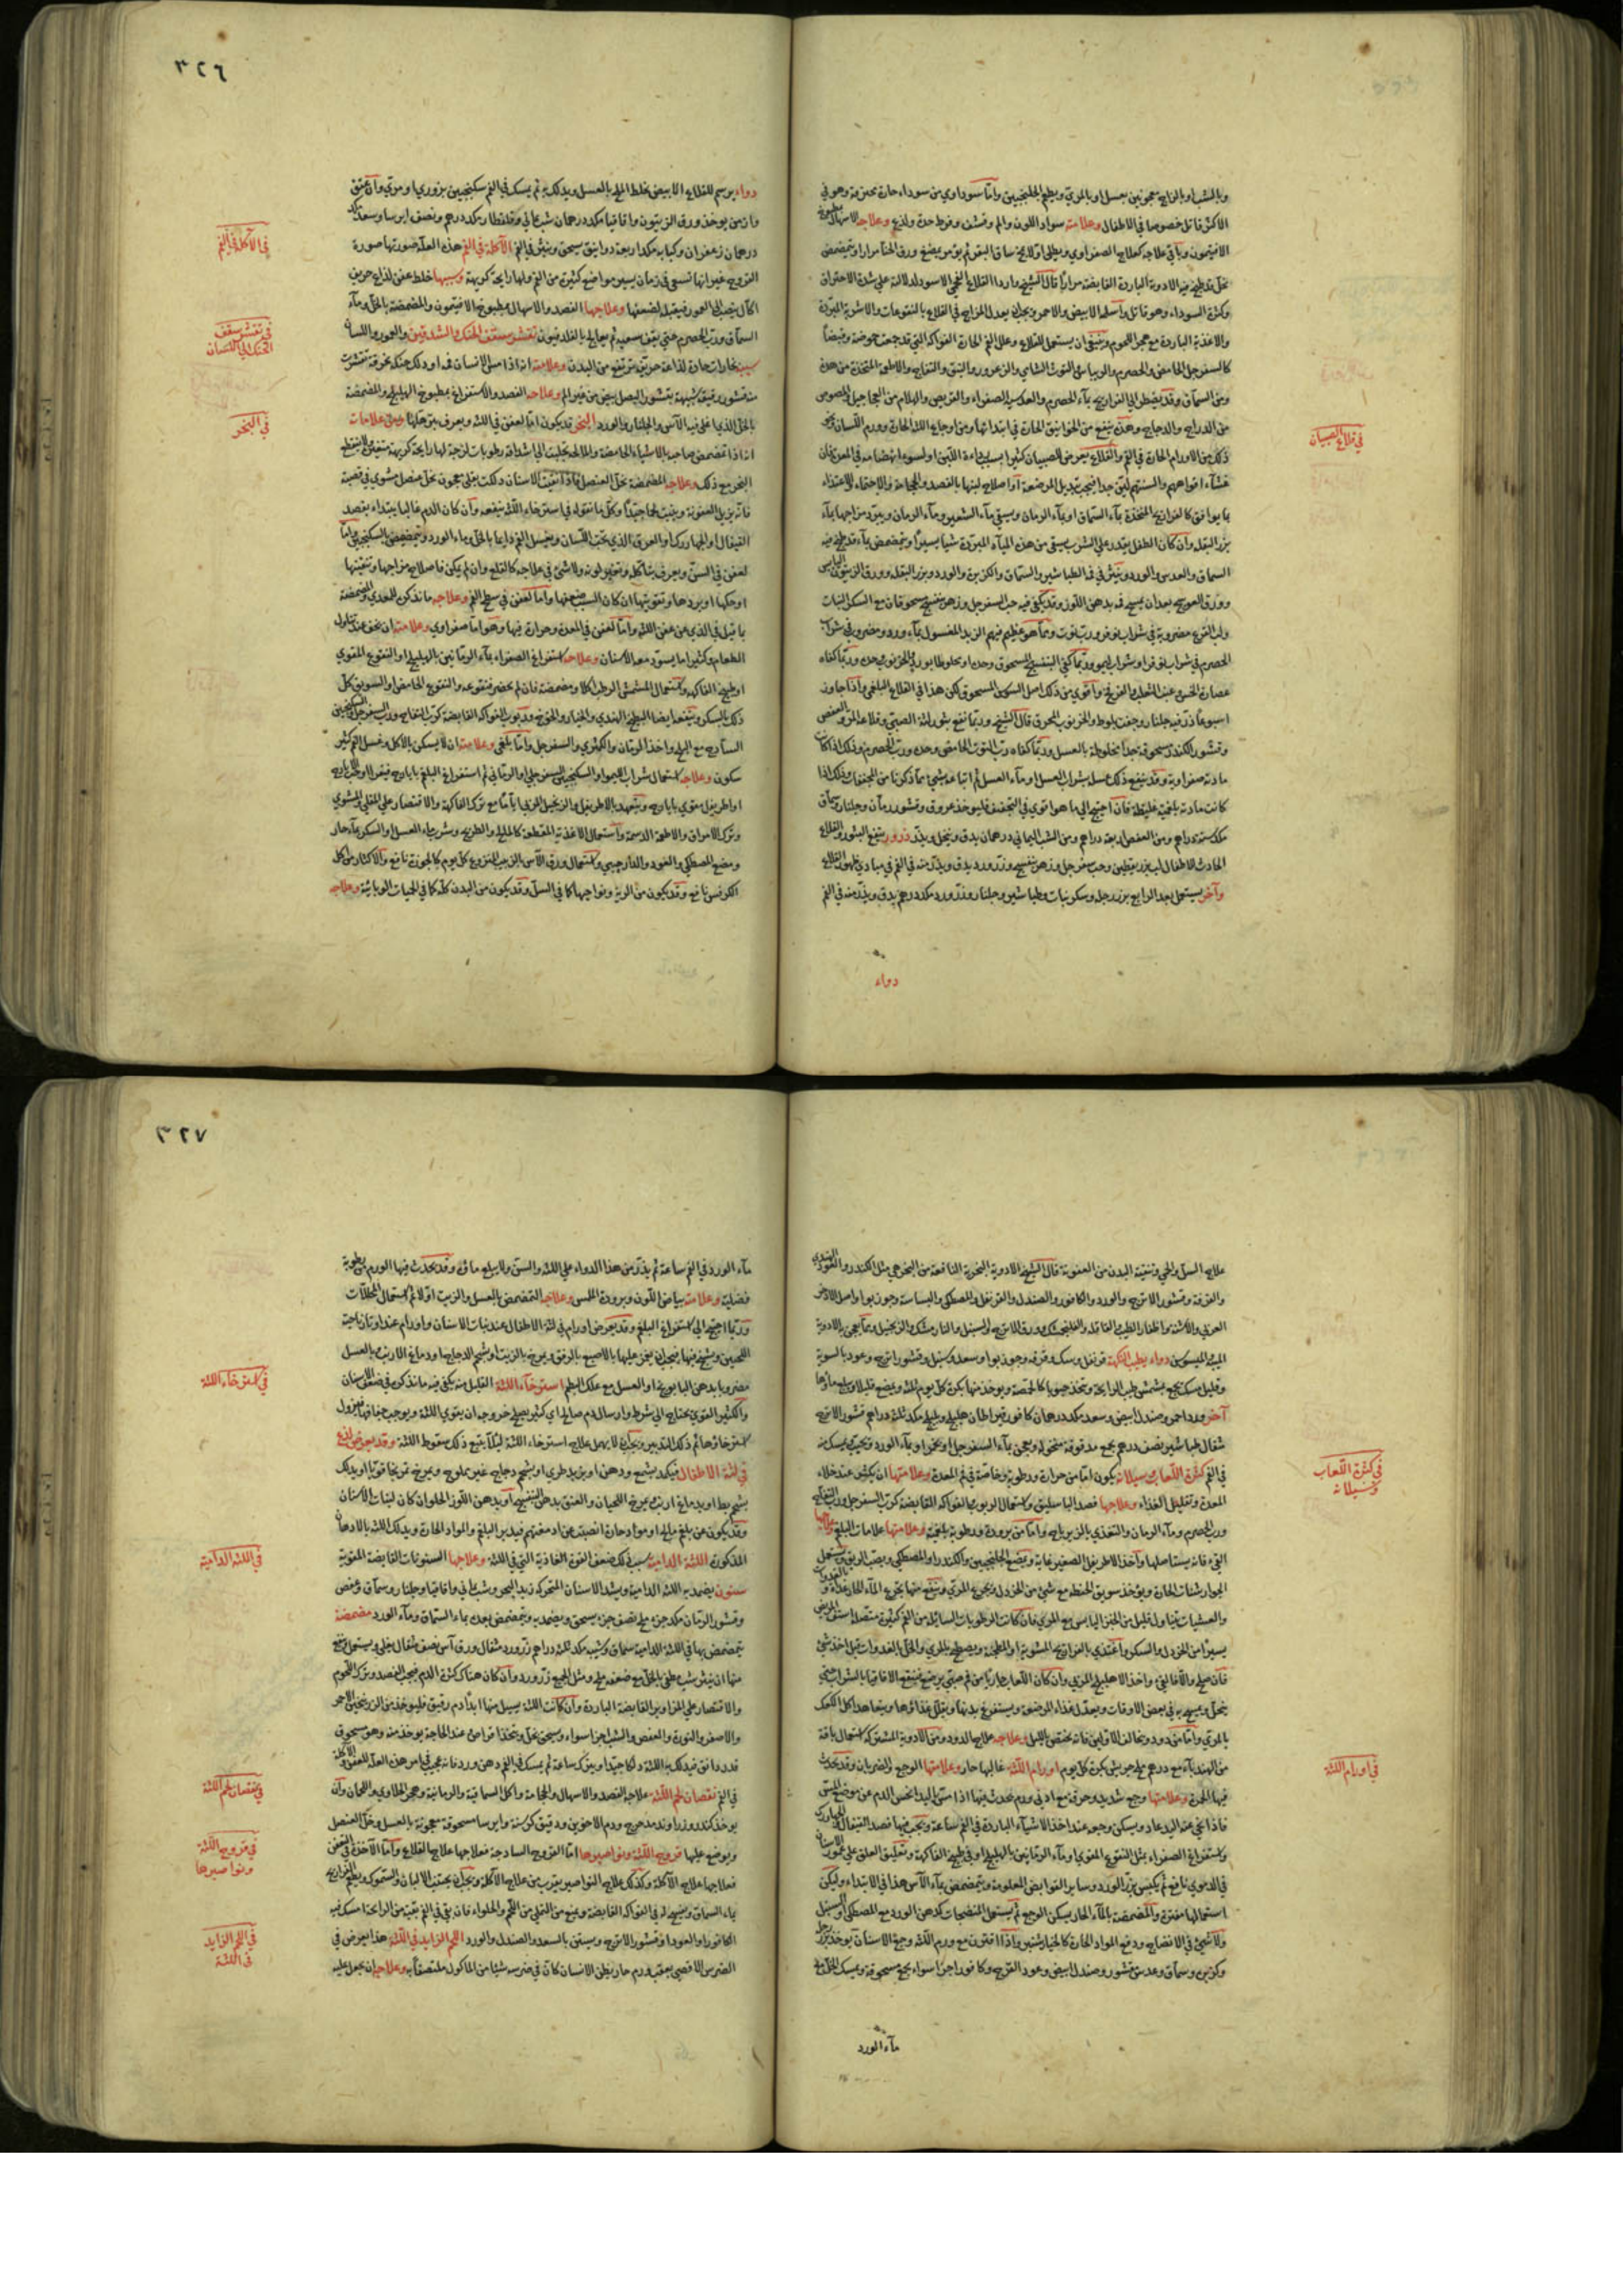 وبالشب او بالزاج معجونين بعسل او بالمري ويطعم الجلنجبين واما سوداوي من سوداء حارة محترقة وهو في
الاكثر قاتل خصوصا في الاطفال وعلامته سواد اللون والم وقشف وفرط حدة ولذع وعلاجه الاسهال بطبوخ
الافتيمون وباقي علاجه كعلاج الصفراوي ويطلى اولا بمخ ساق البقر ثم يؤمر بمضغ ورق الحنا مرارا ويتمضمض
بخل قد طبخ فيه الادوية الباردة القابضة مرارا قال الشيخ واردا القلاع الفحمي الاسود لدلالته على شدة الاحتراق
وكثرة السوداء وهو قاتل واسلمه الابيض والاحمر ويجب ان يعدل المزاج في القلاع بالنقوعات والاشربة المبردة
والاغذية الباردة مع هجر اللحوم وينبغي ان يستعمل للقلاع وعلل الفم الحارة الفواكه التي قد جمعت حموضة وقبضا
كالسفرجل الحامض والحصرم والريباس والتوت الشامي والزعرور والنبق والتفاح والاطعمة المتخذة من هذه
ومن السماق وقد يضطر الى الفراريج بماء الحصرم والعدس الصفراء والقريص والهلام من العجاجيل والمصوص
من الدراج والدجاج وهذه تنفع من الخوانيق الحارة في ابتدائها ومن اوجاع اللثة الحارة وورم اللسان وغير
ذلك من الاورام الحارة في الفم والقلاع يعرض للصبيان كثيرا بسبب رداءة اللبن او لسوء انهضامه في المعدة فان
غشاء افواههم والسنتهم لين جدا فيجب تبديل المرضعة او اصلاح لبنها بالفصد والحجامة والاحتماء والاغتذاء
بما يوافق كالفراريج المتخذة بماء السماق او بماء الرمان وسقي ماء الشعير وماء الرمان ويبرد مزاجها بماء
بزر البقلة وان كان الطفل يقدر على الشرب يسقى من هذه المياه المبردة شيا يسيرا ويتمضمض بماء قد طبخ فيه
السماق والعدس والورد وينثر في فمه الطباشير والسماق والكزبرة والورد وبزر البقلة وورق الزيتون اليابس
وورق العوسج بعد ان يمسح فمه بدهن اللوز وقد يكفي فيه حب السفرجل وزهر بنفسج مسحوقان مع السكر النبات
الحصرم في شراب لينوفر او شراب ليمو وربما كفى البنفسج المسحوق وحده
عصارة الخس وعنب الثعلب والفرفخ واقوى من ذلك اصل السوسن المسحوق لكن هذا في القلاع البلغمي واذا جاوز
اسبوعا ذر فيه جلنار وجفت بلوط والخرنوب المحرق قال الشيخ وربما نفع بثور لثة الصبي وقلاعه المر والعفص
وقشور الكندر مسحوقة جدا مخلوطة بالعسل وربما كفاه رب التوت الحامض وحده ورب الحصرم وذلك اذا كان
مادته صفراوية وقد ينفع ذلك غسله بشراب العسل او ماء العسل ثم اتباعه بشيء مما ذكرنا من المجففات وذلك اذا
كانت مادته بلغمية غليظة فان احتيج الى ما هو اقوى في التجفيف فليؤخذ عروق وقشور رمان وجلنار وسماق
مكد ستة دراهم ومن العفص اربعة دراهم ومن الشب اليماني درهمان يدق وينخل ويذر ذرور ينفع البثور والقلاع
الحادث للاطفال لب بزر يقطين وحب سفرجل وزهر بنفسج وزر ورد يدق ويذر منه في الفم في مبادي ظهور القلاع
وآخر يستعمل بعد الرابع بزر رجلة وسكر نبات وطباشير وجلنار وزر ورد مكد درهم يدق ويذر منه في الفم
دواء
في قلاع الصبيان
٣٢٦
دواء يرسم للقلاع الابيض يخلط الملح بالعسل ويدلك به ثم يمسك في الفم سكنجبين بزوري او مري وان عتق
وازمن يوخذ ورق الزيتون واقاقيا مكد درهمان شب يماني وقلقطار مكد درهم ونصف ايرسا وسعد مكد
درهمان زعفران وكبابه مكد اربعة دوانيق يسحق وينثر في الفم الآكلة في الفم هذه العلة صورتها صورة
القروح غير انها تسعى في زمان يسير مواضع كثيرة من الفم ولها رايحة كريهة وسببها خلط عفن لذاع حريف
اكال ينصب الى العمور فيقبله لضعفها وعلاجها الفصد والاسهال بمطبوخ الافتيمون والمضمضة بالخل وماء
السماق ورب الحصرم حتى يقف سعيه ثم يعالج بالقلدفيون تقشر سقف الحنك والشدقين والعمور واللسان
سببه بخارات حارة لذاعة حريفة ترتفع من البدن وعلامته انه اذا مس الانسان فمه او دلك حنكه بخرقة تقشرت
منه قشور رقيقة شبيهة بقشور البصل بيض من غير الم وعلاجه الفصد والاستفراغ بمطبوخ الهليلج والمضمضة
بالخل الذي اغلي فيه الآس والجلنار والورد البخر قد يكون اما لعفن في اللثة ويعرف بترهلها ومن علامات
انه اذا تمضمض صاحبه بالاشياء الحامضة والمالحة تحلبت الى اشداقه رطوبات لزجة لها رايحة كريهة
البخر مع ذلك وعلاجه المضمضة بخل العنصل فاذا نقيت الاسنان دلكت بعفص معجون بخل عنصل مشوي في قصبة
فانه يزيل العفونة وينبت لحما جيدا وكل ما نقوله في استرخاء اللثة ينفعه وان كان الدم غالبا يبتداء بفصد
القيفال او الجهاررك او العرق الذي تحت اللسان ويغسل الفم دايما بالخل وماء الورد ويتمضمض بالسكنجبين واما
لعفن في السن ويعرف بتاكله وتغير لونه ولا شئ في علاجه كالقلع وان لم يكن فاصلاح مزاجها وتنقيتها
اوحكها او بردها وتقويتها ان كان السبب ضعفها واما لعفن في سطح الفم وعلاجه ما نذكره للمعدي والمضمضة
بما قيل في الذي عن عفن اللثة واما لعفن في المعدة وحرارة فيها وهو اما صفراوي وعلامته ان يخف عند تناول
الطعام وكثيرا ما يسود معه الاسنان وعلاجه استفراغ الصفراء بماء الرمانين بالهليلج او النقوع المقوي
او طبيخ الفاكهة واستعمال المشمش الرطب اكلا ومضمضة فان لم يحضر فنقوعه والنقوع الحامض او السويق كل
ذلك بالسكر وينفعه ايضا البطيخ الهندي والخيار والخوخ وربوب الفواكه القابضة كرب التفاح ورب السفرجل والسكنجبين
الساذج مع البلح واخذ الرمان والكمثرى والسفرجل واما بلغمي وعلامته ان لا يسكن بالاكل وغسل الفم كثير
سكون وعلاجه استعمال شراب الليمو او السكنجبين السفرجلي او الرماني ثم استفراغ البلغم بايارج فيقرا او حب ايارج
او اطريفل مقوي بايارج ويتعهد بالاطريفل والزنجبيل المربى ايامًا مع ترك الفاكهة والاقتصار على المقلي والمشوي
وترك الامراق والاطعمة الدسمة واستعمال الاغذية المقطعة كالمليح والطريخ وشرب ماء العسل والسكر بماء حار
ومضغ المصطكي والعود والدارجيني واستعمال ورق الآس الزبيب المنزوع كل يوم كالجوزة نافع والاكثار من اكل
الكرفس نافع وقد يكون من الرية ونواحيها كما في السل وقد يكون من البدن كله كما في الحميات الوبائية وعلاجه
في الآكلة في الفم
في تقشر سقف
الحنك الى اللسان
في البخر
علاج السل والحمى وتنقية البدن من العفونة قال الشيخ الادوية البخرية النافعة من البخر هي مثل الكندر والعود الهندي
والقرفة وقشور الاترج والورد والكافور والصندل والقرنفل والمصطكي والبسباسة وجوز بوا واصل الاذخر
الميبة الميسوسن دواء يطيب النكهة قرنفل وسك وقرفه وجوز بوا وسعد وسنبل وقشور اترج وعود بالسوية
وقليل مسك يجمع بمشمش طيب الرايحة ويتخذ حبوبا كالحمصة ويوخذ منها بكرة كل يوم ثلثة ويمضغ قليلا ويبلع ماؤها
آخر ورد احمر وصندل ابيض وسعد مكد درهمان كافور قيراطان هليلج وبليلج مكد ثلثة دراهم قشور الاترج
مثقال طباشير نصف درهم يجمع مدقوقة منخولة ويعجن بماء السفرجل او بخمر او بماء الورد ويحبب يمسك منه
في الفم كثرة اللعاب وسيلانه يكون اما من حرارة ورطوبة وخاصة في فم المعدة وعلامتها ان يكثر عند خلاء
المعدة وتقليل الغذاء وعلاجها فصد الباسليق واستعمال الربوب والفواكه القابضة كرب السفرجل ورب التفاح
ورب الحصرم وماء الرمان والتغذي بالزيرباج واما من برودة ورطوبة بلغمية وعلامتها علامات البلغم وعلاجها
القيء فانه يستاصلها واخذ الاطريفل الصغير غاية ومضغ الجلنجبين والكندر او المصطكي وبصق الريق واستعمل
الجوارشنات الحارة ويؤخذ سويق الحنطة مع شئ من الخردل وتجرع المري وينفع منها تجرع الماء الحار غداة و
والعشيات بتناول قليل من الخبز اليابس مع المري فان كانت الرطوبات السائلة من الفم كثيرة متصلة
يسيرا من الخردل والسكر واغتذي بالفراريج المشوية او المطجنة ويصطبغ بالمري والخل بالغدوات قبل اخذ شئ
يتحلى ويمسح به في بعض الاوقات ويعدل غذاء المرضعة ويستفرغ بدنها ويقلل غذاؤها ويتعاهد اكل الكعك
بالمري واما من دود ويخالف الاولين فانه يختص بالليل وعلاجه علاج الدود ومن الادوية المشتركة استعمال باقة
من الهندباء مع درهم ملح جريش بكرة كل يوم اورام اللثة غالبها حار وعلامتها الوجع والضربان وقد يحدث
فيها الحمرة وعلامتها وجع شديد وحرقة مع ادنى ورم يحدث فيها اذا مستها اليد انحبس الدم عن موضع المس
فاذا نحي عنه اليد عاد ويسكن وجعه عند اخذ الاشياء الباردة في الفم ساعة ويجب فيها فصد القيفال
واستفراغ الصفراء بمثل النقوع المقوي او ماء الرمانين بالهليلج او في طبيخ الفاكهة وتعليق العلق على عمور الاسنان
في الدموي نافع ثم يكبس بزر الورد وساير القوابض المعلومة ويتمضمض بماء الآس هذا في الابتداء وليكن
استعمالها مفترة والمضمضة بالماء الحار يسكن الوجع ثم يستعمل المنضجات كدهن الورد مع المصطكى او السنبل
ولا شئ في الانضاج ودفع المواد الحارة كالخيار شنبر واذا اقترن مع ورم اللثة وجع الاسنان يوخذ بزر رجلة
وكزبرة وسماق وعدس مقشور وصندل ابيض وعود القرح وكافور اجزا سواء يجمع مسحوقة ويمسك الخل مع
ماء الورد
في كثرة اللعاب
وسيلانه
في اورام اللثة
٣٢٧
ماء الورد في الفم ساعة ثم يذر من هذا الدواء على اللثة والسن ولا يبلع ماؤه وقد يحدث فيها الورم من رطوبة
فضلية وعلامته بياض اللون وبرودة الملمس وعلاجه التمضمض بالعسل والزيت اولا ثم استعمال المحللات
وربما احتيج الى استفراغ البلغم وقد يعرض اورام في لثة الاطفال عند نبات الاسنان واورام عند اوتار ناحية
اللحيين وتشنج فيها فيجب ان يغمز عليها بالاصبع بالرفق ويمرخ بالزيت او شحم الدجاج او دماغ الارنب بالعسل
مضروبا بدهن البابونج او العسل مع علك البطم استرخاء اللثة القليل منه يكفي فيه ما نذكره في ضعف الاسنان
والكثير القوي يحتاج الى شرط وارسال دم صالح اي كثير يصلح خروجه ان يقوي اللثة ويوجب جفافها فيزول
استرخاؤها ثم ذلك التدبير ويجب ان لا يهمل علاج استرخاء اللثة ليلا يتبع ذلك سقوط اللثة وقد يعرض لذع
في لثة الاطفال فيكمد بشمع ودهن او بزبد طري او بشحم دجاج غير مملوح ويمرخ تمريخا قويا او يدلك
بشحم بط او بدماغ ارنب ويمرخ اللحيان والعنق بدهن البنفسج او بدهن اللوز الحلو ان كان لنبات الاسنان
وقد يكون عن بلغم مالح او مواد حارة انصبت عن ادمغتهم فيدبر البلغم والمواد الحارة ويدلك اللثة بالادهان
المذكورة اللثة الدامية سبب ذلك ضعف القوة الغاذية التي في اللثة وعلاجها السنونات القابضة المقوية
سنون يضمد به اللثة الدامية ويشد الاسنان المتحركة زبد البحر وشب يماني واقاقيا وجلنار وسماق وعفص
وقشور الرمان مكد جزء ملح نصف جزء يسحق ويضمد به ويتمضمض بعده بماء السماق وماء الورد مضمضة
يتمضمض بها في اللثة الدامية سماق وشب مكد ثلثة دراهم زر ورد مثقال ورق آس نصف مثقال يغلى ويستعمل وينفع
منها ان ينثر شب طفئ بالخل مع ضعفه ملح ومثل الجميع زر ورد وان كان هناك كثرة الدم فيجب الفصد وترك اللحوم
والاقتصار على المزاوير القابضة الباردة وان كانت اللثة يسيل منها ابدا دم رقيق فليوخذ من الزرنيخين الاحمر
والاصفر والنورة والعفص والشب اجزا سواء ويسحق بخل ويتخذ اقراص عند الحاجة يوخذ منه وهو مسحوق
قدر دانق فيدلك به اللثة دلكا جيدا ويترك ساعة ثم يمسك في الفم دهن ورد فانه عجيب في امر هذه العلة
في الفم نقصان لحم اللثة علاجه الفصد والاسهال والحجامة واكل السماقية والرمانية وهجر الحلاوي واللحمان وان
يوخذ كندر وزراوند مدحرج ودم الاخوين ودقيق كرسنة وايرسا مسحوقة معجونة بالعسل وخل العنصل
ويوضع عليها قروح اللثة ونواصيرها اما القروح الساذجة فعلاجها علاج القلاع واما الآخذة في التعفن
فعلاجها علاج الآكلة وكذلك علاج النواصير يقرب من علاج الآكلة ويجب ان يجتنب الالبان والسموك ويطعم الفراريج
بماء السماق ويفسح له في الفواكه القابضة ويمنع من التملي من اللحم والحلواء فان بقي في الفم بقية من الرايحة امسك فيه
الكافور او العود او قشور الاترج ويستن بالسعد والصندل والورد اللحم الزايد في اللثة هذا يعرض في
الضرس الاقصى بعقب ورم حار يظن الانسان كان في ضرسه شيئا من الماكول ملتصقا به وعلاجه ان يجعل عليه
في استرخاء اللثة
في اللثة الدامية
في نقصان لحم اللثة
في قروح اللثة
ونواصيرها
في اللحم الزايد
في اللثة